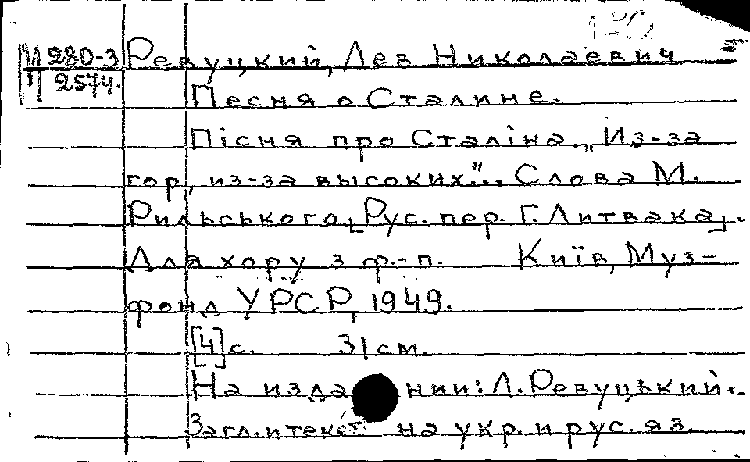 М 280-3 Ревуцкий, Лев Николаевич
2574.
Песня о Сталине.
Пісня про Сталіна. „Из-за
гор, из-за высоких...". Слова М.
Рильського [Рус. пер. Г. Литвака].
Для хору з ф.-п. Київ, Муз-
фонд УРСР, 1949.
[4] с. 31 см.
На издании: Л. Ревуцький.
Загл. и текст на укр. и рус. яз.